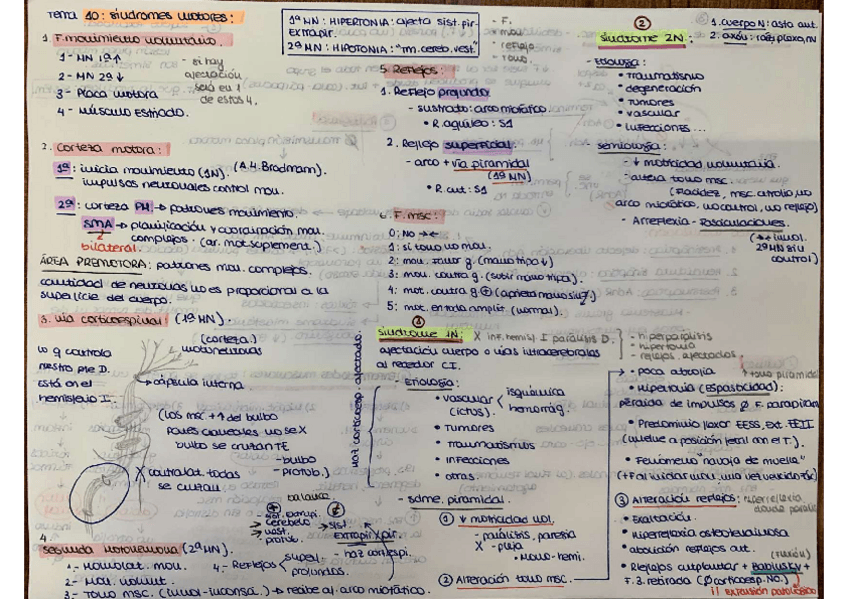 Tema 10: síndromes motores:
1. F. movimiento voluntario.
1- MN 1ª↑
2- MN 2ª↓
3- Placa motora
4- Músculo estriado.
si hay
afectación
será en 1
de estos 4.
2. Corteza motora:
1ª: inicia movimiento (1N). (A.4. Brodmann).
impulsos neuronales control mov.
2ª: corteza PM → patrones movimiento.
SMA → planificación y coordinación mov.
complejos. (ar. mot. suplement.)
bilateral.
ÁREA PREMOTORA: patrones mov. complejos.
cantidad de neuronas no es proporcional a la
superficie del cuerpo.
3. vía corticoespinal: (1ª MN).
(corteza.)
motoneuronas
lo q controla
nuestro pie D.
está en el
hemisferio I.
→ cápsula interna
(los msc + ↑ del bulbo
pares craneales no se X
bulbo se cruzan TE
-bulbo
-protub.)
X contralat. todas
se cruzan
4.
segunda motoneurona (2ª MN).
1.- Movilat. mov.
2- Mov. volunt.
3- Tono msc. (invol-inconsc.) → recibe al arco miotático.
4.- Reflejos
superf.
profundos.
balance
cerebelo
vest.
protub.
→ sist.
Extrapir
pir.
- haz cortespi.
1ª MN: HIPERTONIA: afecta sist. pir.
Extrapir.
2ª MN: HIPOTONIA: "tm. cereb. vest."
- F.
- mov
- reflejo
- tono.
5. Reflejos:
1. Reflejo profundo
- sustrato: arco miotático.
• R. aquíleo: S1
2. Reflejo superficial.
- arco + vía piramidal
(1ª MN)
• R. cut: S1
6. F. msc:
0: No →←
1: sí tono no mov.
2: mov. favor g. (mueve tipo v)
3: mov. contra g. (subir mano tipica).
4: mot. contra g ⊕
5: mot. en todo ampli (normal).
①
síndrome 1N:
X inf. hemisf. I parálisis D.
- hiperparálisis
- hipertonia
- reflejos afectados
afectación cuerpo o vías intracerebrales
al rededor CI.
haz corticoesp. afectado.
- Etiología:
• vascular
(ictus).
isquémica
hemorrág.
• tumores
• traumatismos
• infecciones
• otras
- sdme. piramidal.
① ↓ motricidad vol.
- parálisis, paresia
X - plejia
• Mono- hemi.
② Alteración tono msc.
②
síndrome 2N:
1. cuerpo N: asta ant.
2. axón: raíz, plexo, nv
- Etiología:
• traumatismo
• degeneración
• tumores
• vascular
• infecciones...
Semiología:
- ↓ motricidad voluntaria.
- altera tono msc.
(Flacidez, msc. atrófico no
arco miotático, no control, no reflejo)
- Arreflexia - Fasciculaciones.
(→← invol.
2ª MN sin
control)
• poca atrofia
↑ tono piramidal
• Hipertonía (ESPASTICIDAD):
pérdida de impulsos ∅ F. parapiram
• Predominio flexor EESS, ext. EEII
(vuelve a posición fetal con el T.)
• Fenómeno navaja de muelle"
③ Alteración reflejos:
hiperreflexia
• Exaltación.
• Hiperreflexia osteotendinosa
• abolición reflejos cut.
• Reflejos cutplantar + Babinsky +
F. 3. retirada (∅ corticoesp. No.)
¡! extensión patológica